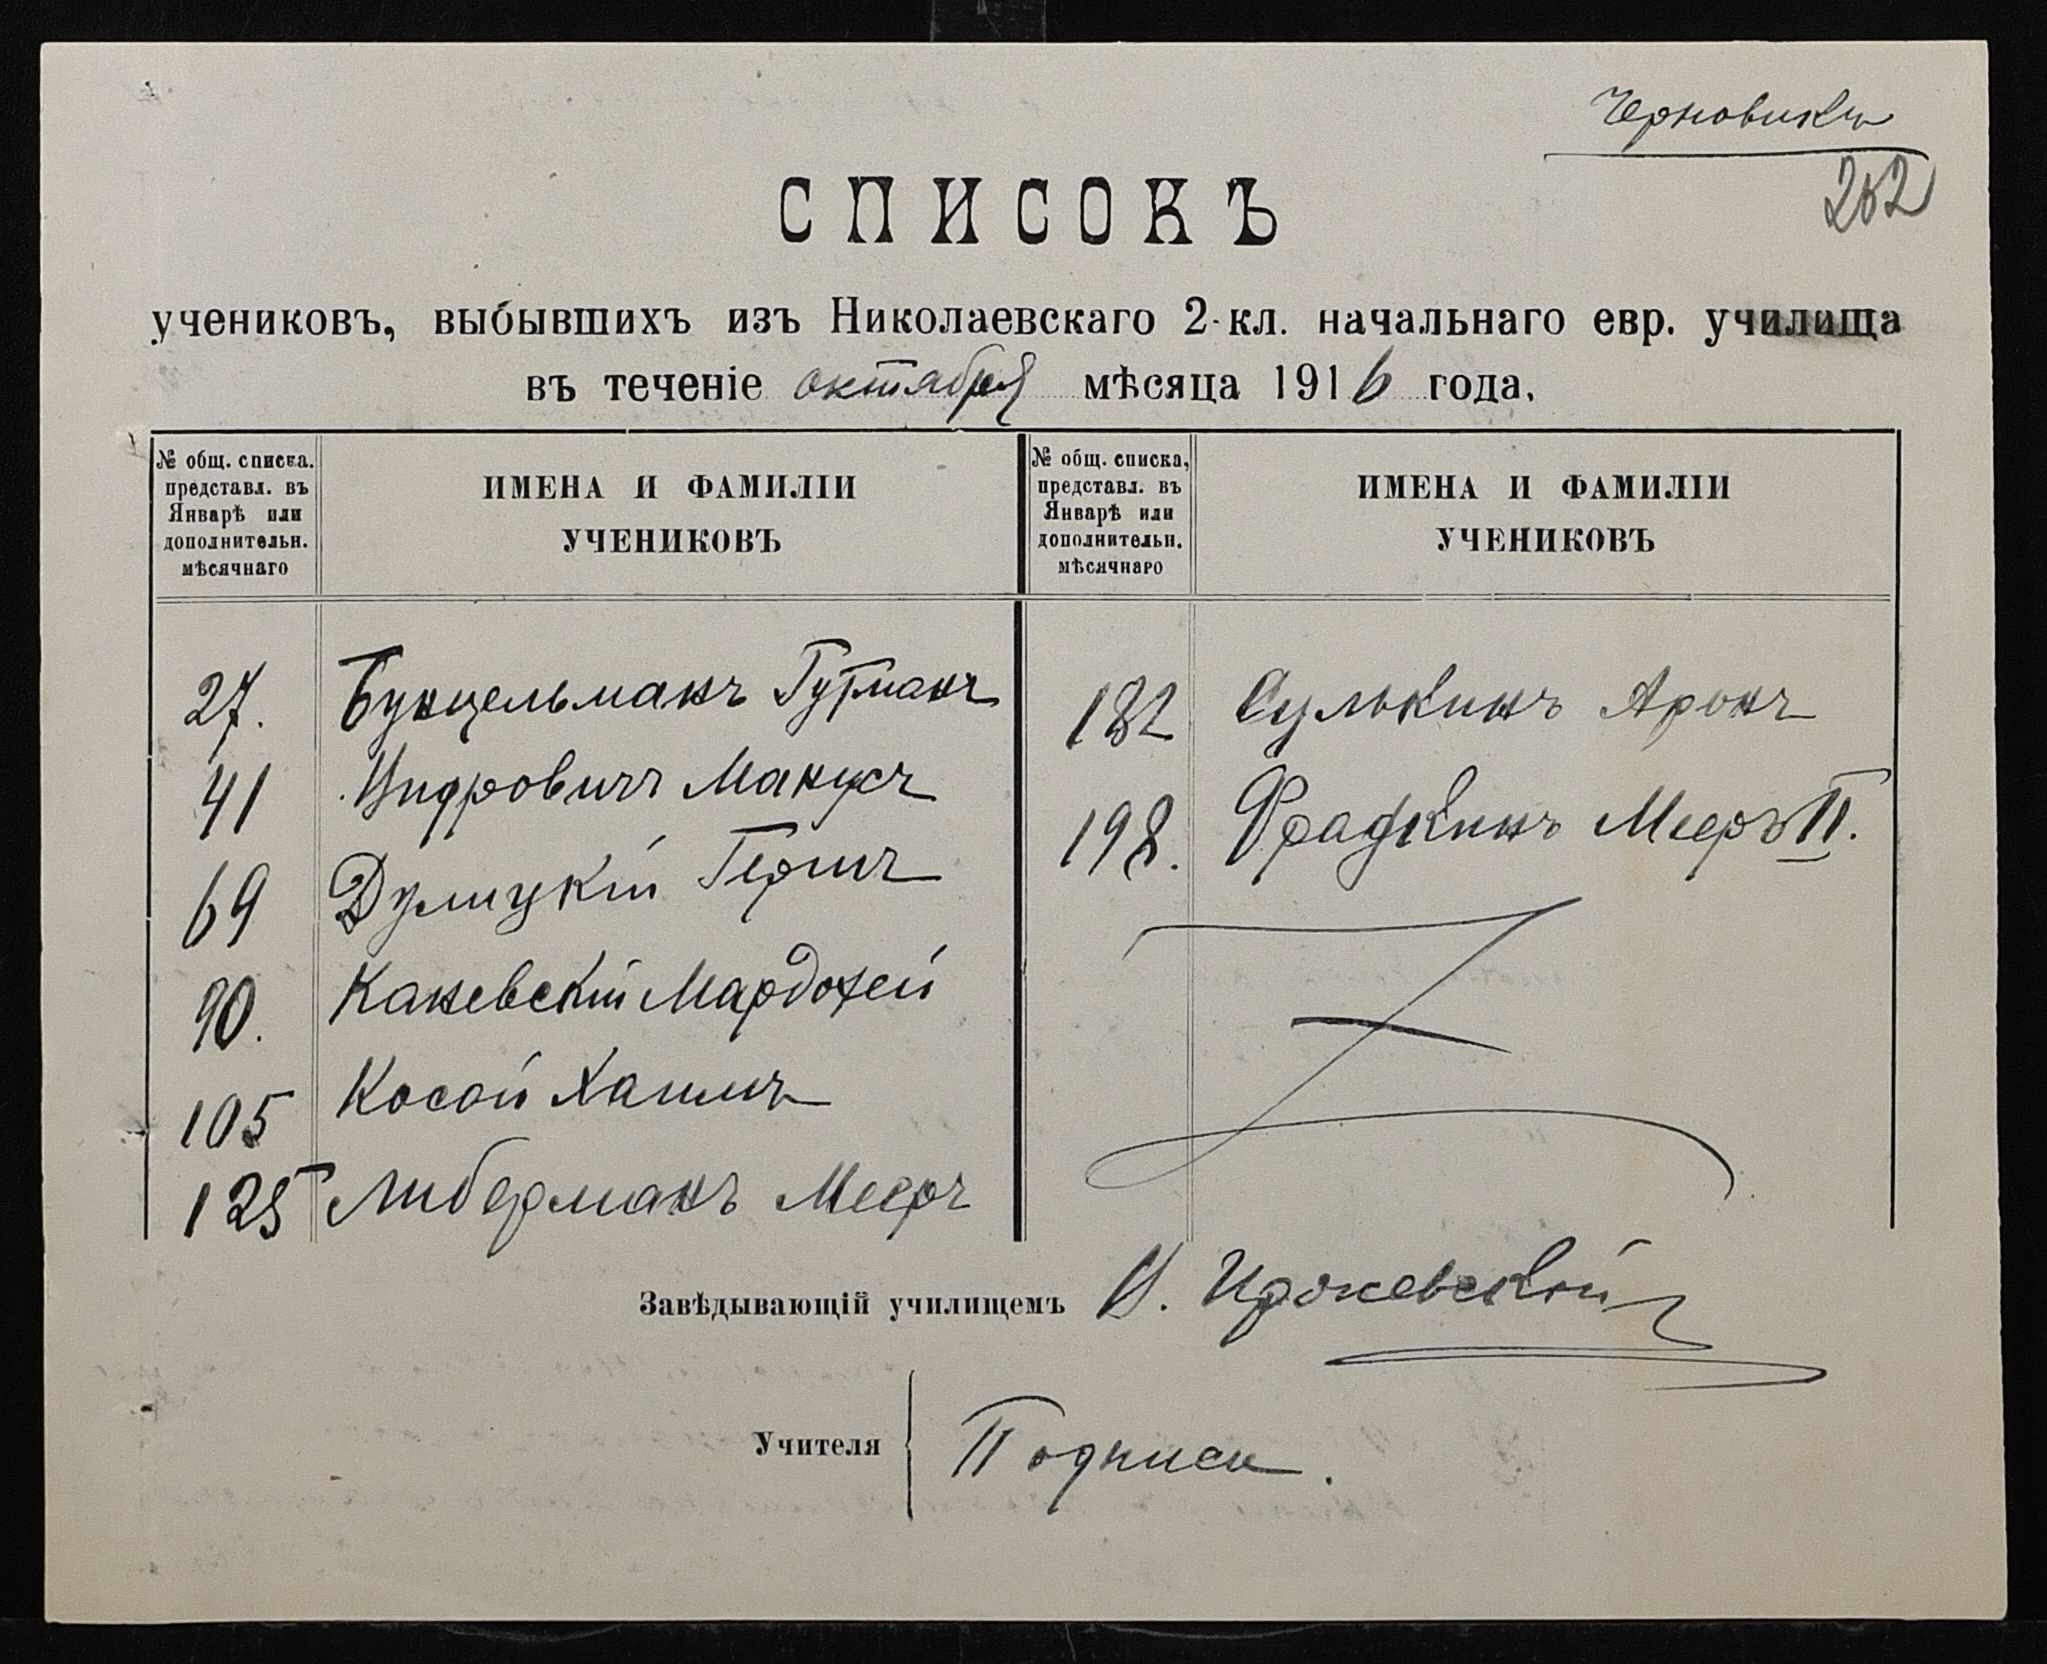 Черновикъ
202
СПИСОКЪ
учениковъ, выбывшихъ изъ Николаевскаго 2-кл. начальнаго евр. училища
въ теченіе октября мѣсяца 1916 года.
№ общ. списка. представл. въ Январѣ или дополнительн. мѣсячнаго
ИМЕНА И ФАМИЛІИ УЧЕНИКОВЪ
№ общ. списка, представл. въ Январѣ или дополнительн. мѣсячнаго
ИМЕНА И ФАМИЛІИ УЧЕНИКОВЪ
27. Бунцельманъ Гутманъ
41 Цидровичъ Манусъ
69 Дулицкій Гершъ
90. Каневскій Мардохей
105 Косой Хаимъ
125 Либерманъ Мееръ
182 Сулькинъ Аронъ
198. Фрадкинъ Мееръ II.
Завѣдывающій училищемъ
Учителя
Подписи.